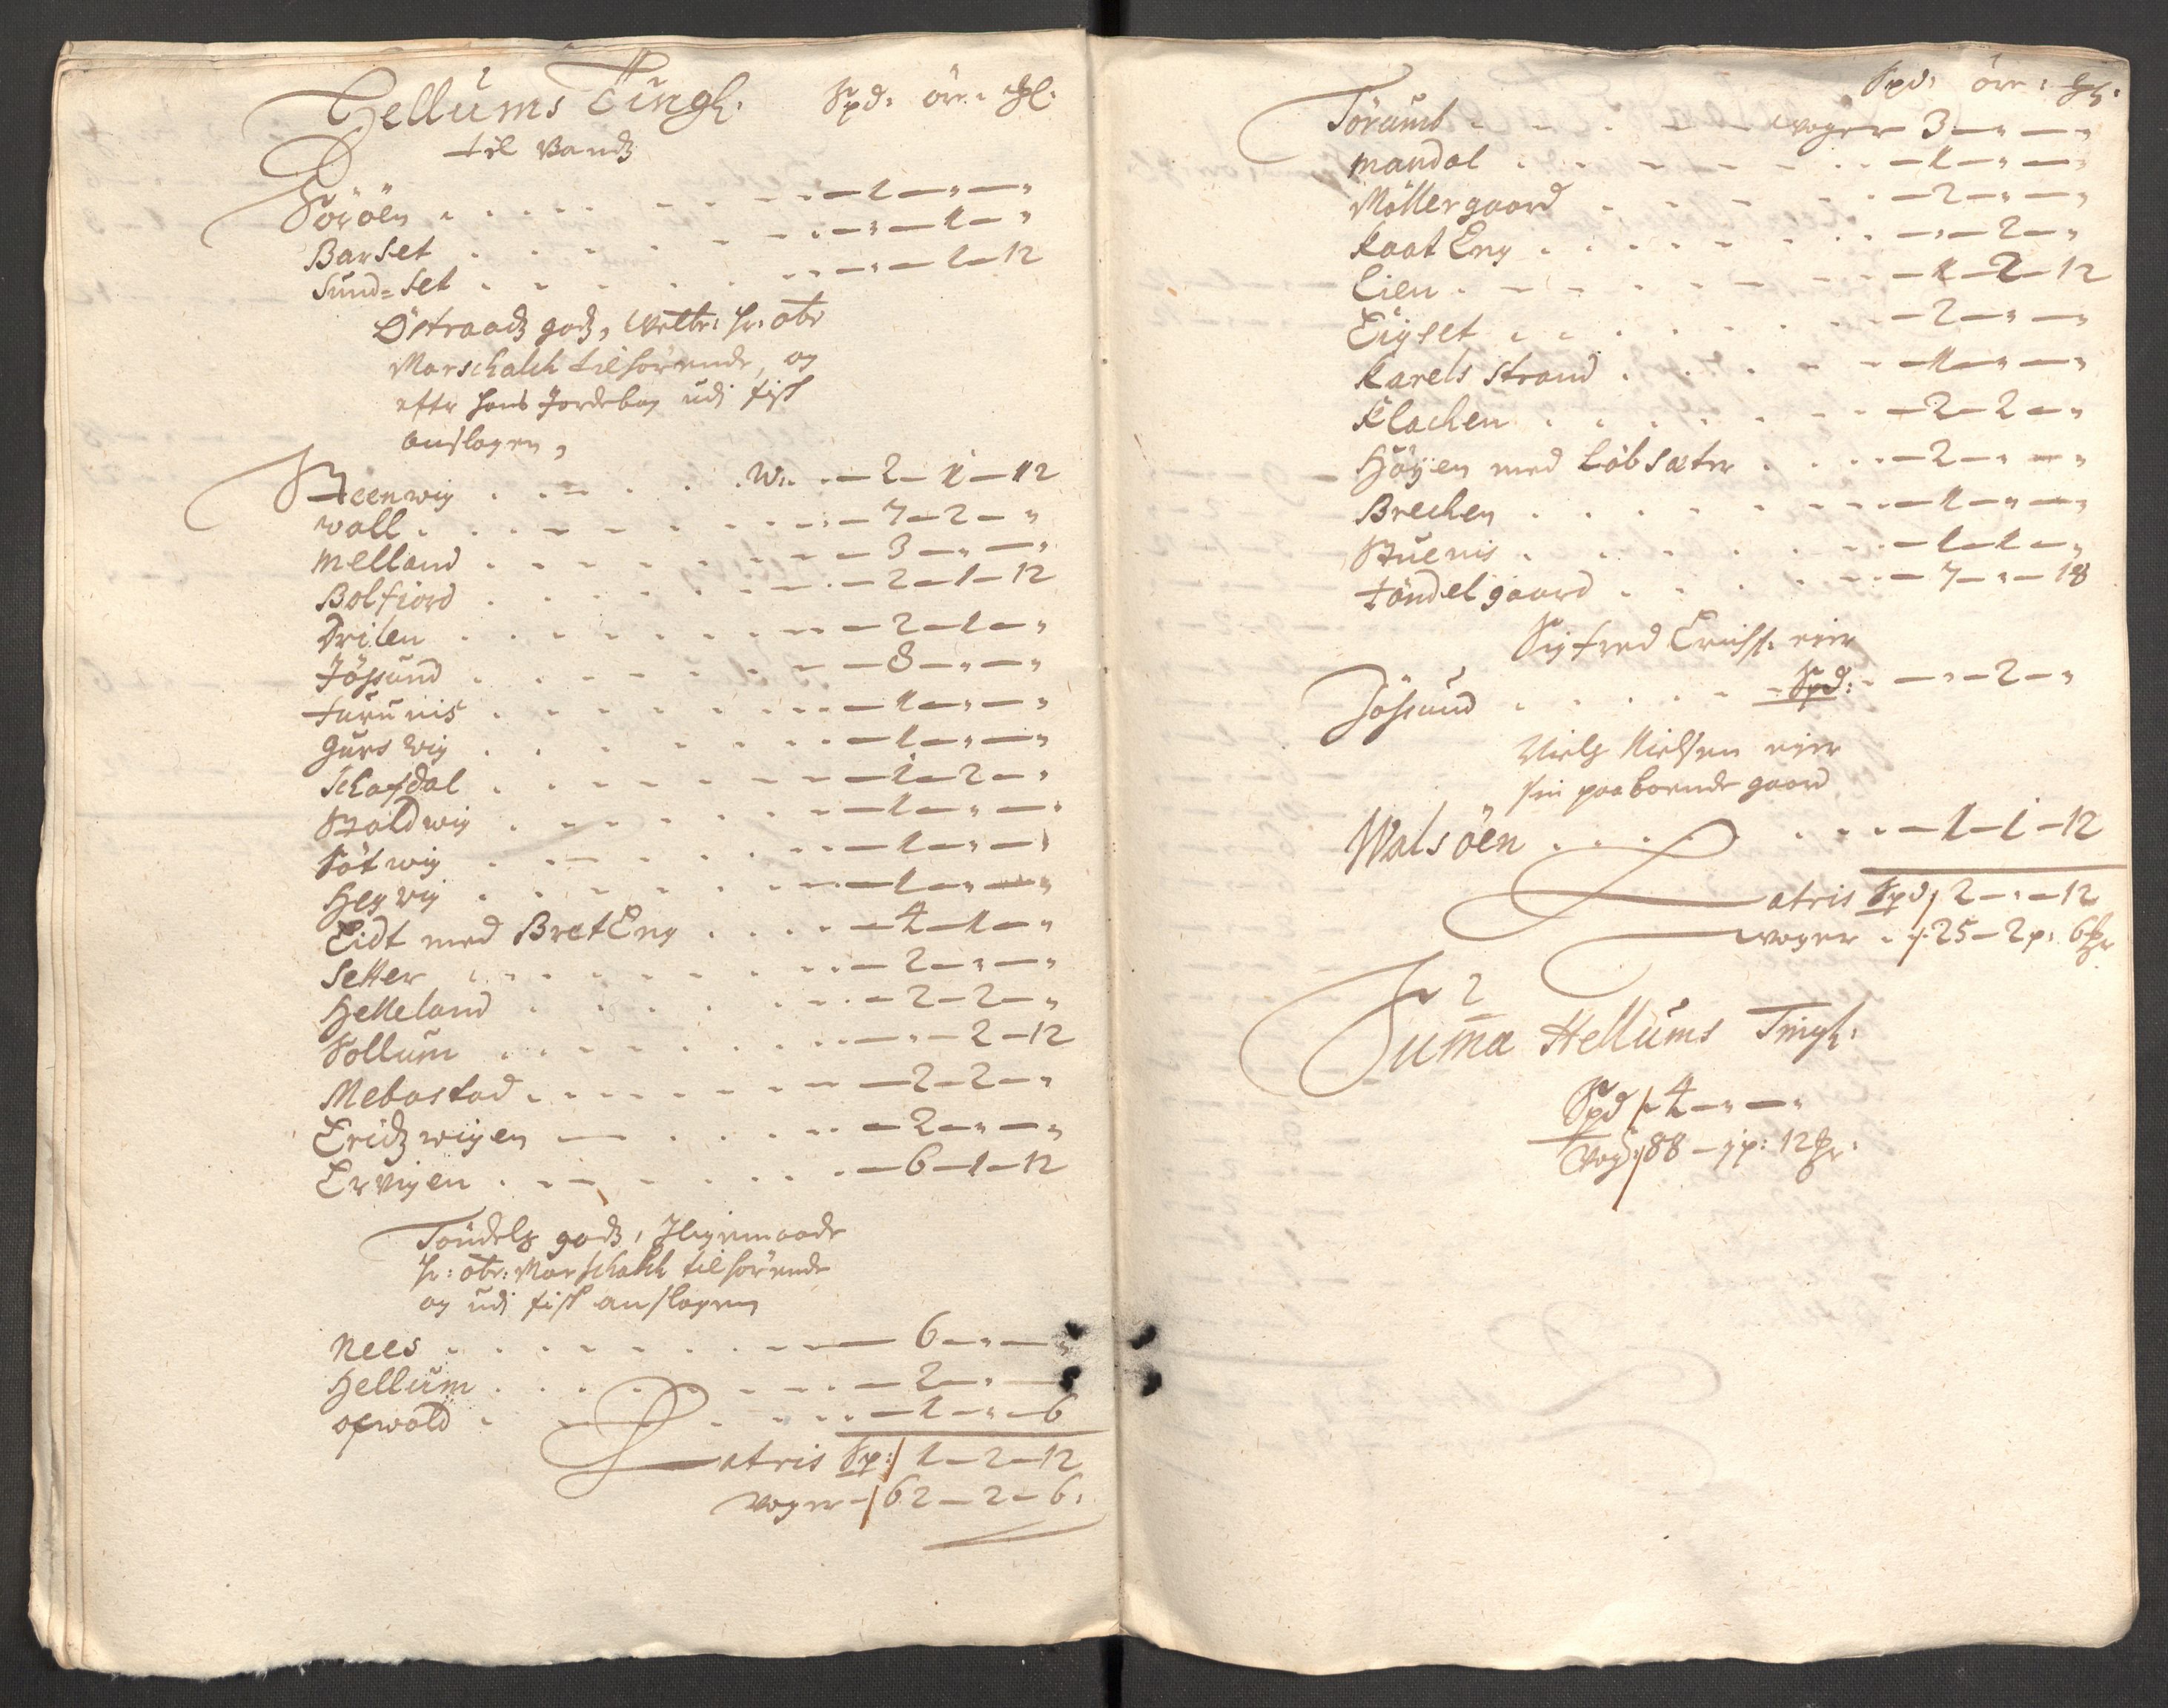 Hellums Tingl: Spd: öre: Gl:
til Vands
Söröen . . . . . . . — 1 — " — "
Barset . . . . . . . — " — 1 — "
Sund=set . . . . . . — " — 1 — 12
Östraads gods, Welbr: hr: obr
Marschalch tilhörende, og
efter hans Jordebog udj fisk
anslagen,
Steenwig . . . . . W: . — 2 — 1 — 12
wall . . . . . . . — 7 — 2 — "
Melland . . . . . . — 3 — " — "
Bolfiord . . . . . . — 2 — 1 — 12
Drilen . . . . . . — 2 — 1 — "
Jössund . . . . . . — 8 — " — "
turunis . . . . . . — 1 — " — "
Gurswig . . . . . . — 1 — " — "
Schafdal . . . . . . — 1 — 2 — "
Stoldwig . . . . . . — 1 — " — "
Sötwig . . . . . . — 1 — " — "
Hegvig . . . . . . — 1 — " — "
Eidt med BretEng . . . . — 4 — 1 — "
Setter . . . . . . — 2 — " — "
Helleland . . . . . . — 2 — 2 — "
Sollum . . . . . . — " — 2 — 12
Mebostad . . . . . . — 2 — 2 — "
Eridswigen — . . . . — 2 — " — "
Ervigen . . . . . . — 6 — 1 — 12
Töndels gods, Jligemaade
hr: obr: Marschalch tilhörende
og udj fisk anslagen
Nees . . . . . . — 6 — " — "
Hellum . . . . . . — 2 — " —
ofwald . . . . . . — 1 — " — 6
Latris Sp: / 1 — 2 — 12
Woger — / 62 — 2 — 6:
Spd: öre: Gl:
Törumb . . . . . woger 3 — " — "
Mandal . . . . . . — 1 — " — "
Möllergaard . . . . . — 2 — " — "
KaatEng . . . . . . — " — 2 — "
Lien . . . . . . — 1 — 2 — 12
Eigset . . . . . . — 2 — " — "
Karels Strand . . . . . — 1 — " — "
Klachen . . . . . . — 2 — 2 — "
Höyen med Löbsæter . . . . — 2 — " — "
Brechen . . . . . . — 1 — " — "
Stuenis . . . . . . — 1 — 1 — "
töndelgaard . . . . . — 7 — " — 18
Sigfred Erichs: eier
Jössund . . . . . Spd: — " — 2 — "
Niels Nielsen eier
sin paaboende gaard
Walsöen . . . . . . — 1 — 1 — 12
Latris Spd / 2 — " — 12
woger . / 25 — 2 p: 6
Suma Hellums Tingl:
Spd / 4 — " — "
Vog: / 88 — 1 p: 12